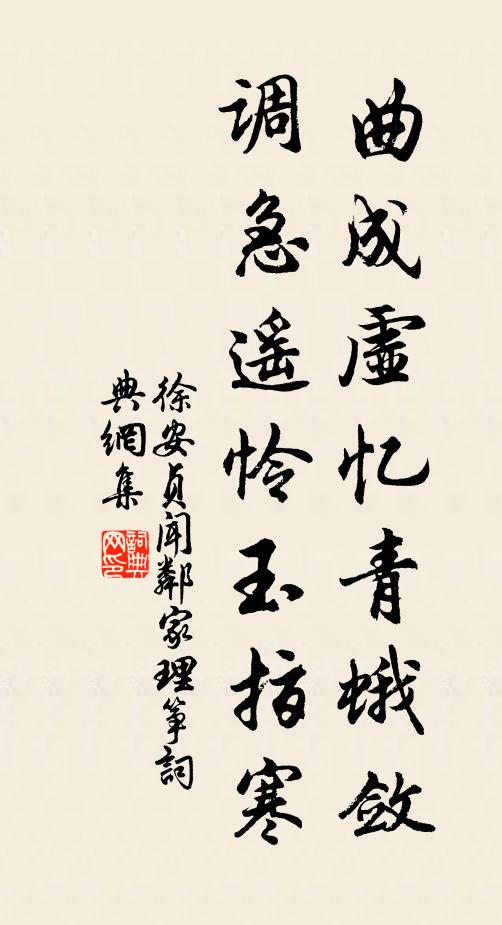 曲成虚忆青蛾敛
调急遥怜玉指寒
徐安贞闻鄰家理筝詞
典網集
詞典
网印